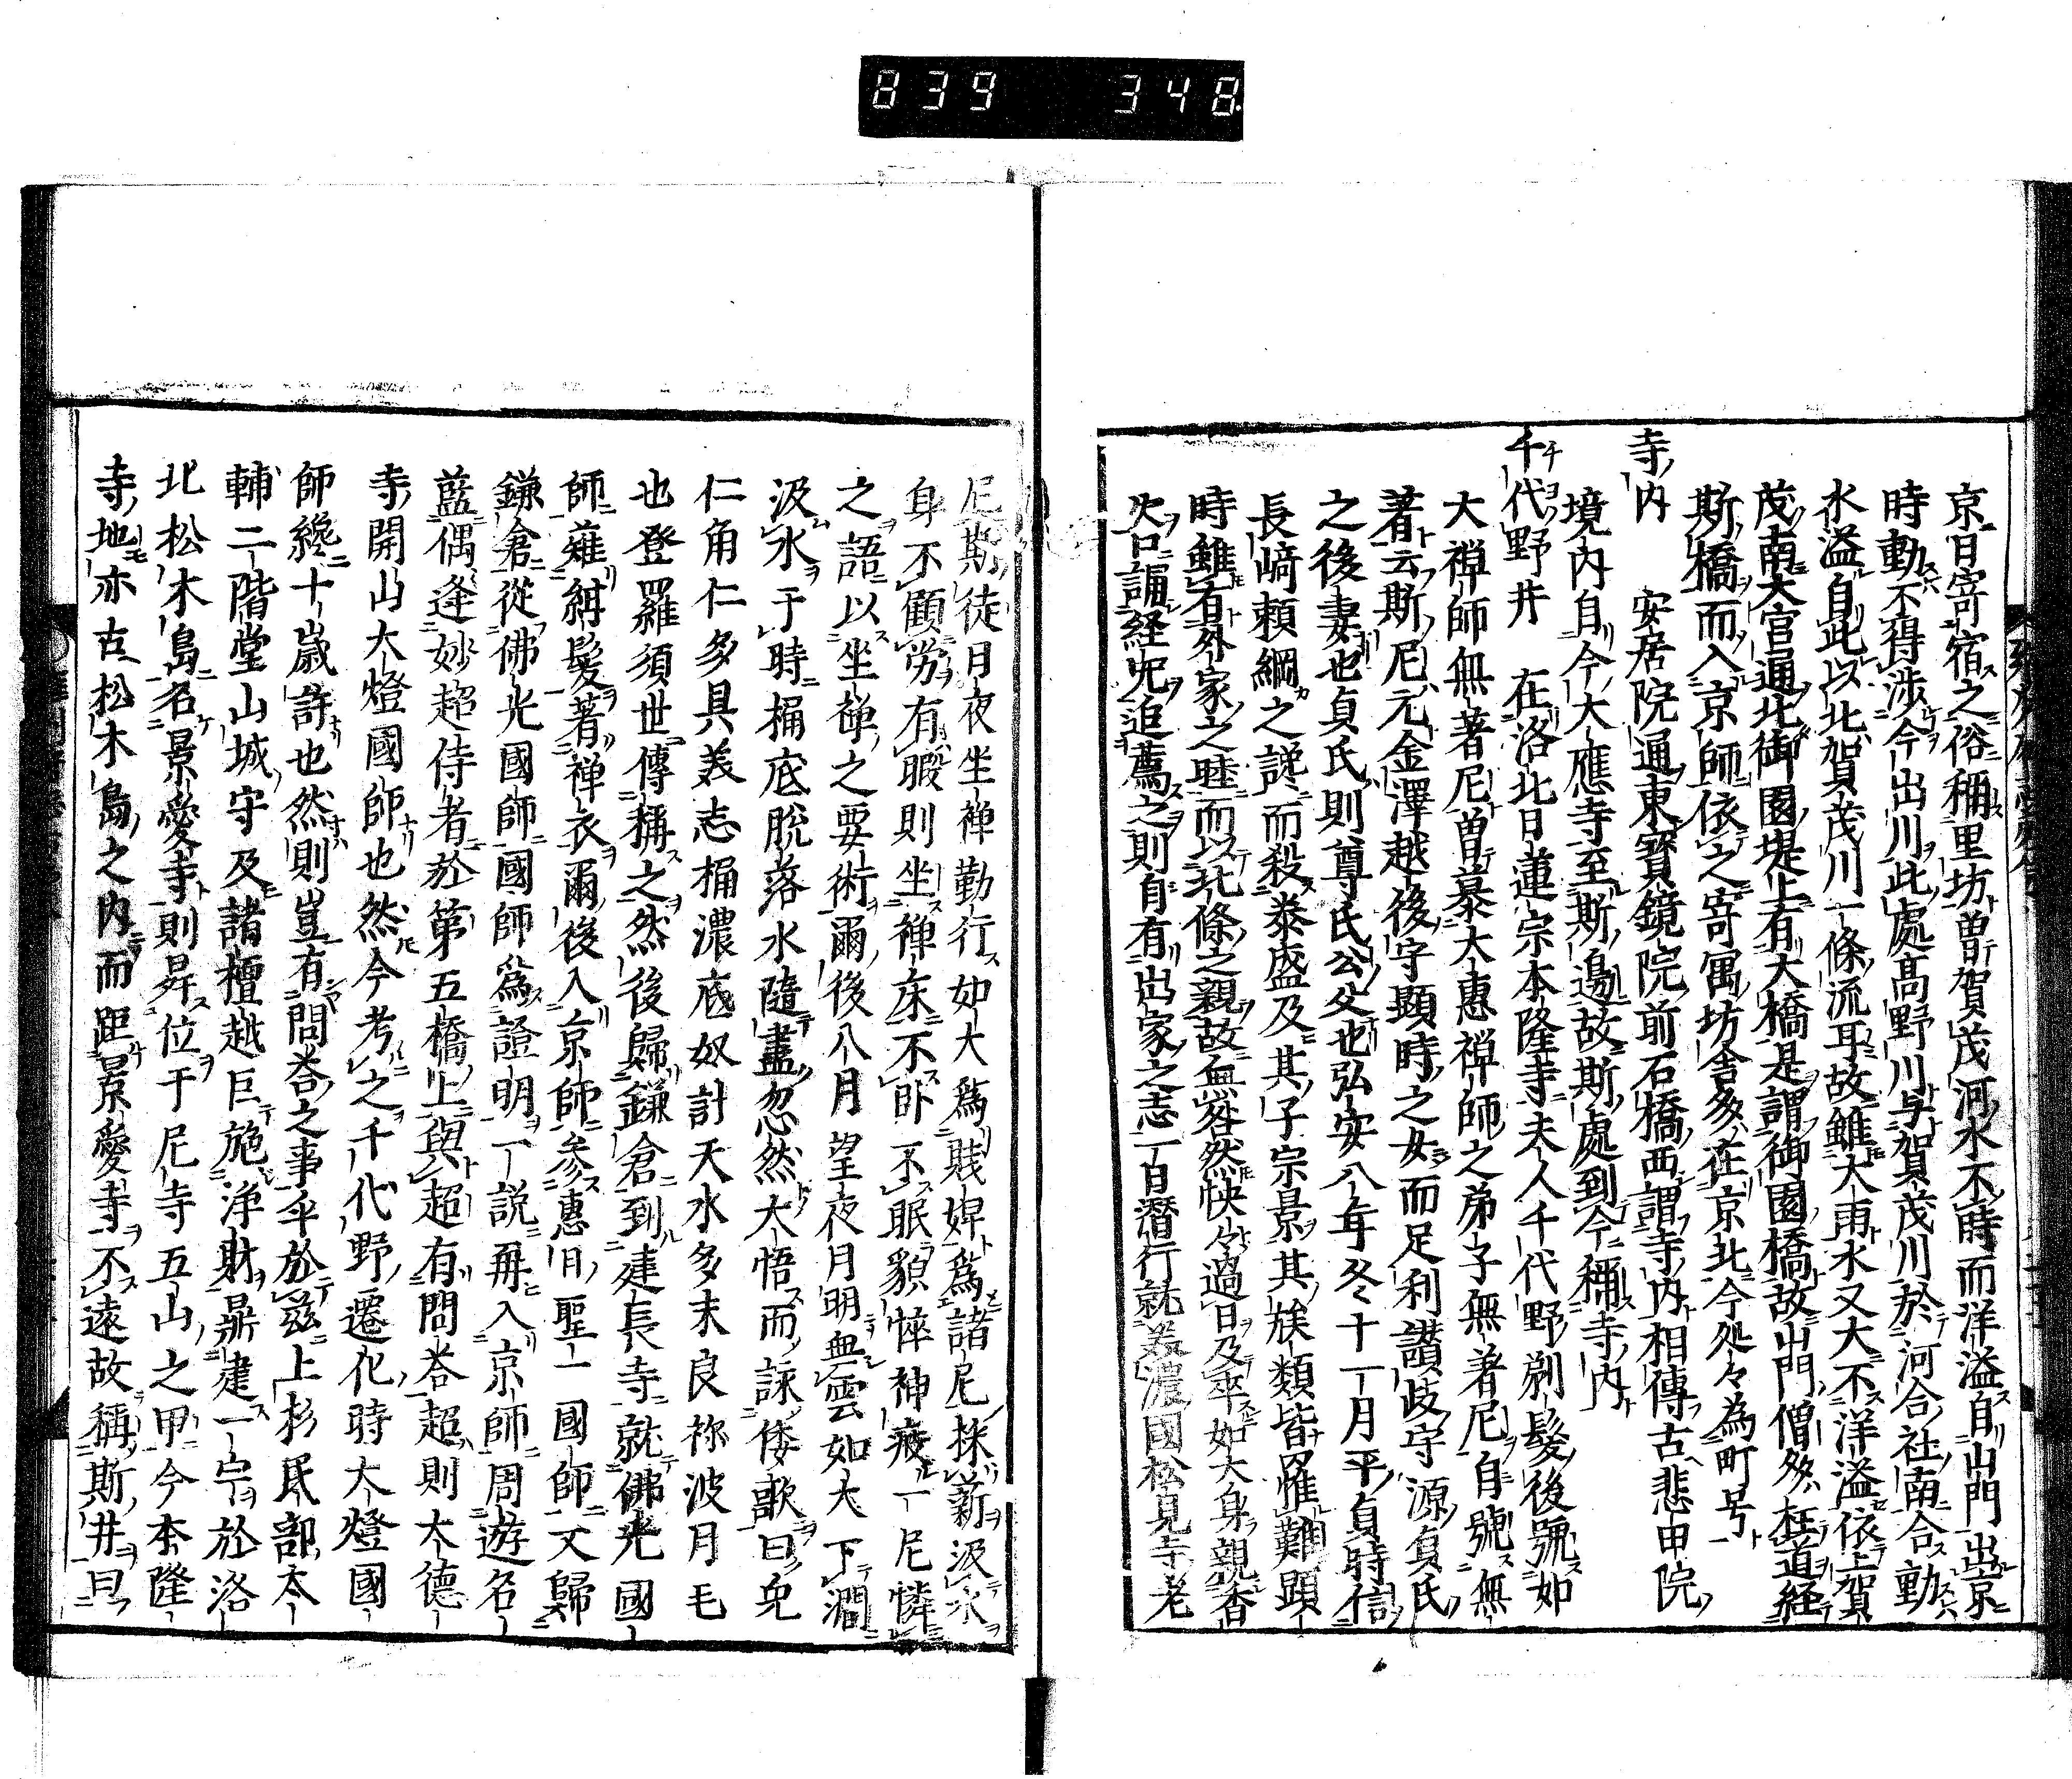 839 348
京日寄宿之俗稱里坊曽賀茂河水不時而洋溢自山門出京
時動不得渉今出川此處高野川与賀茂川於河合社南合動
水溢自此以北賀茂川一條流耳故雖大雨水又大不洋溢依上賀
茂南大宮通北御園堤上有大橋是謂御園橋故山門僧多枉道経
斯橋而入京師依之寄寓坊舎多在京北今処々為町号
寺内 安居院通東寳鏡院前石橋西謂寺内相傳古悲田院
境内自今大應寺至斯邊故斯處到今稱寺内
千代野井 在洛北日蓮宗本隆寺夫人千代野剃髪後號如
大禅師無著尼曽慕大惠禅師之弟子無著尼自號無
著云斯尼元金澤越後守顯時之女而足利讃歧守源貞氏
之後妻也貞氏則尊氏公父也弘安八年冬十一月平貞時信
長﨑頼綱之讒而殺泰盛及其子宗景其族類皆罹難顕
時雖有外家之睦而以北條之親故無咎然怏々過日及卒如大身親香
火口誦経咒追薦之則自有出家之志一日潜行就美濃國松見寺老
尼斯徒月夜坐禅勤行如大為賎婢為諸尼採薪汲水
身不顧労有暇則坐禅床不臥不眠貌悴神疲一尼憐
之語以坐禅之要術爾後八月望夜月明無雲如大下澗
汲水于時桶底脱落水随盡忽然大悟而詠倭歌曰兎
仁角仁多具美志桶濃底奴計天水多末良祢波月毛
也登羅須世傳稱之然後歸鎌倉到建長寺就佛光國
師薙紺髪著禅衣爾後入京師参惠日聖一國師又歸
鎌倉従佛光國師國師為證明一説再入京師周遊名
藍偶逢妙超侍者於第五橋上與超有問答超則大德
寺開山大燈國師也然今考之千代野遷化時大燈國
師纔十歳許也然則豈有問答之事乎於茲上杉氏部大
輔二階堂山城守及諸檀越巨施浄財鼎建一宇於洛
北松木島名景愛寺則昇位于尼寺五山之甲今本隆
寺地亦古松木島之内而距景愛寺不遠故稱斯井曰